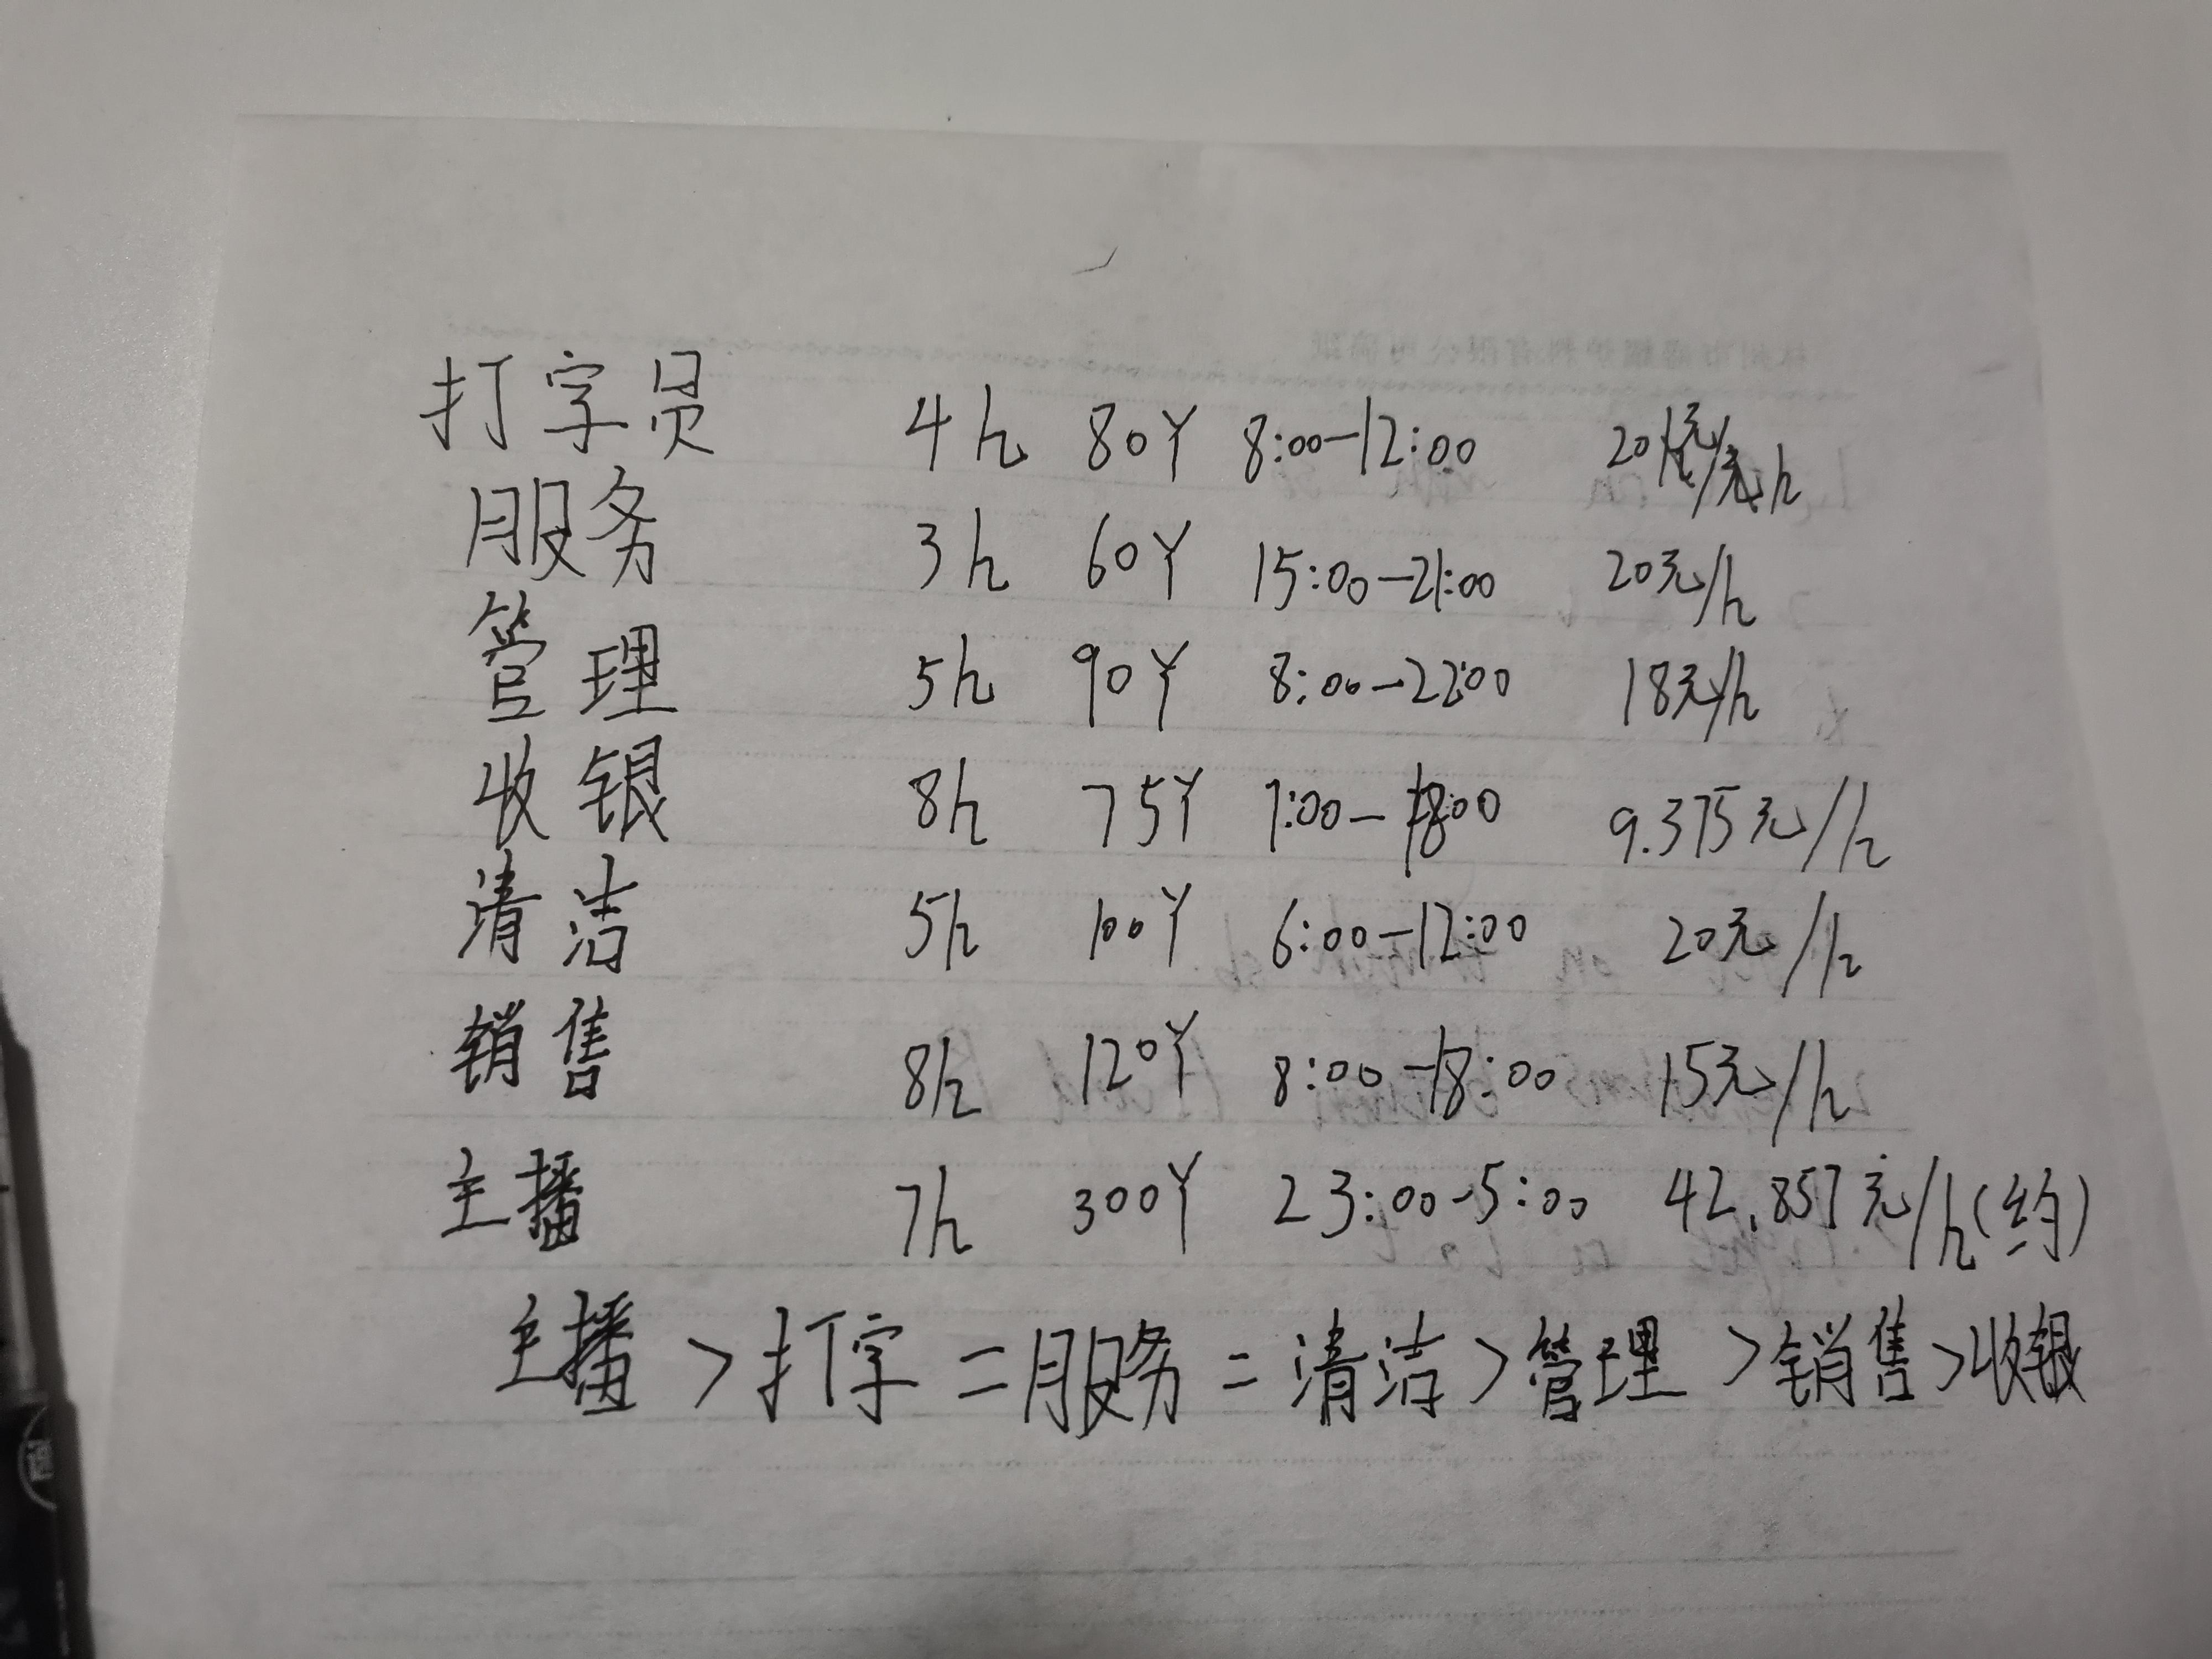 打字员 4h 80Y 8:00-12:00 20元/h
服务 3h 60Y 15:00-21:00 20元/h
管理 5h 90Y 8:00-22:00 18元/h
收银 8h 75Y 7:00-18:00 9.375元/h
清洁 5h 100Y 6:00-12:00 20元/h
销售 8h 120Y 8:00-18:00 15元/h
主播 7h 300Y 23:00-5:00 42.857元/h(约)
主播>打字=服务=清洁>管理>销售>收银